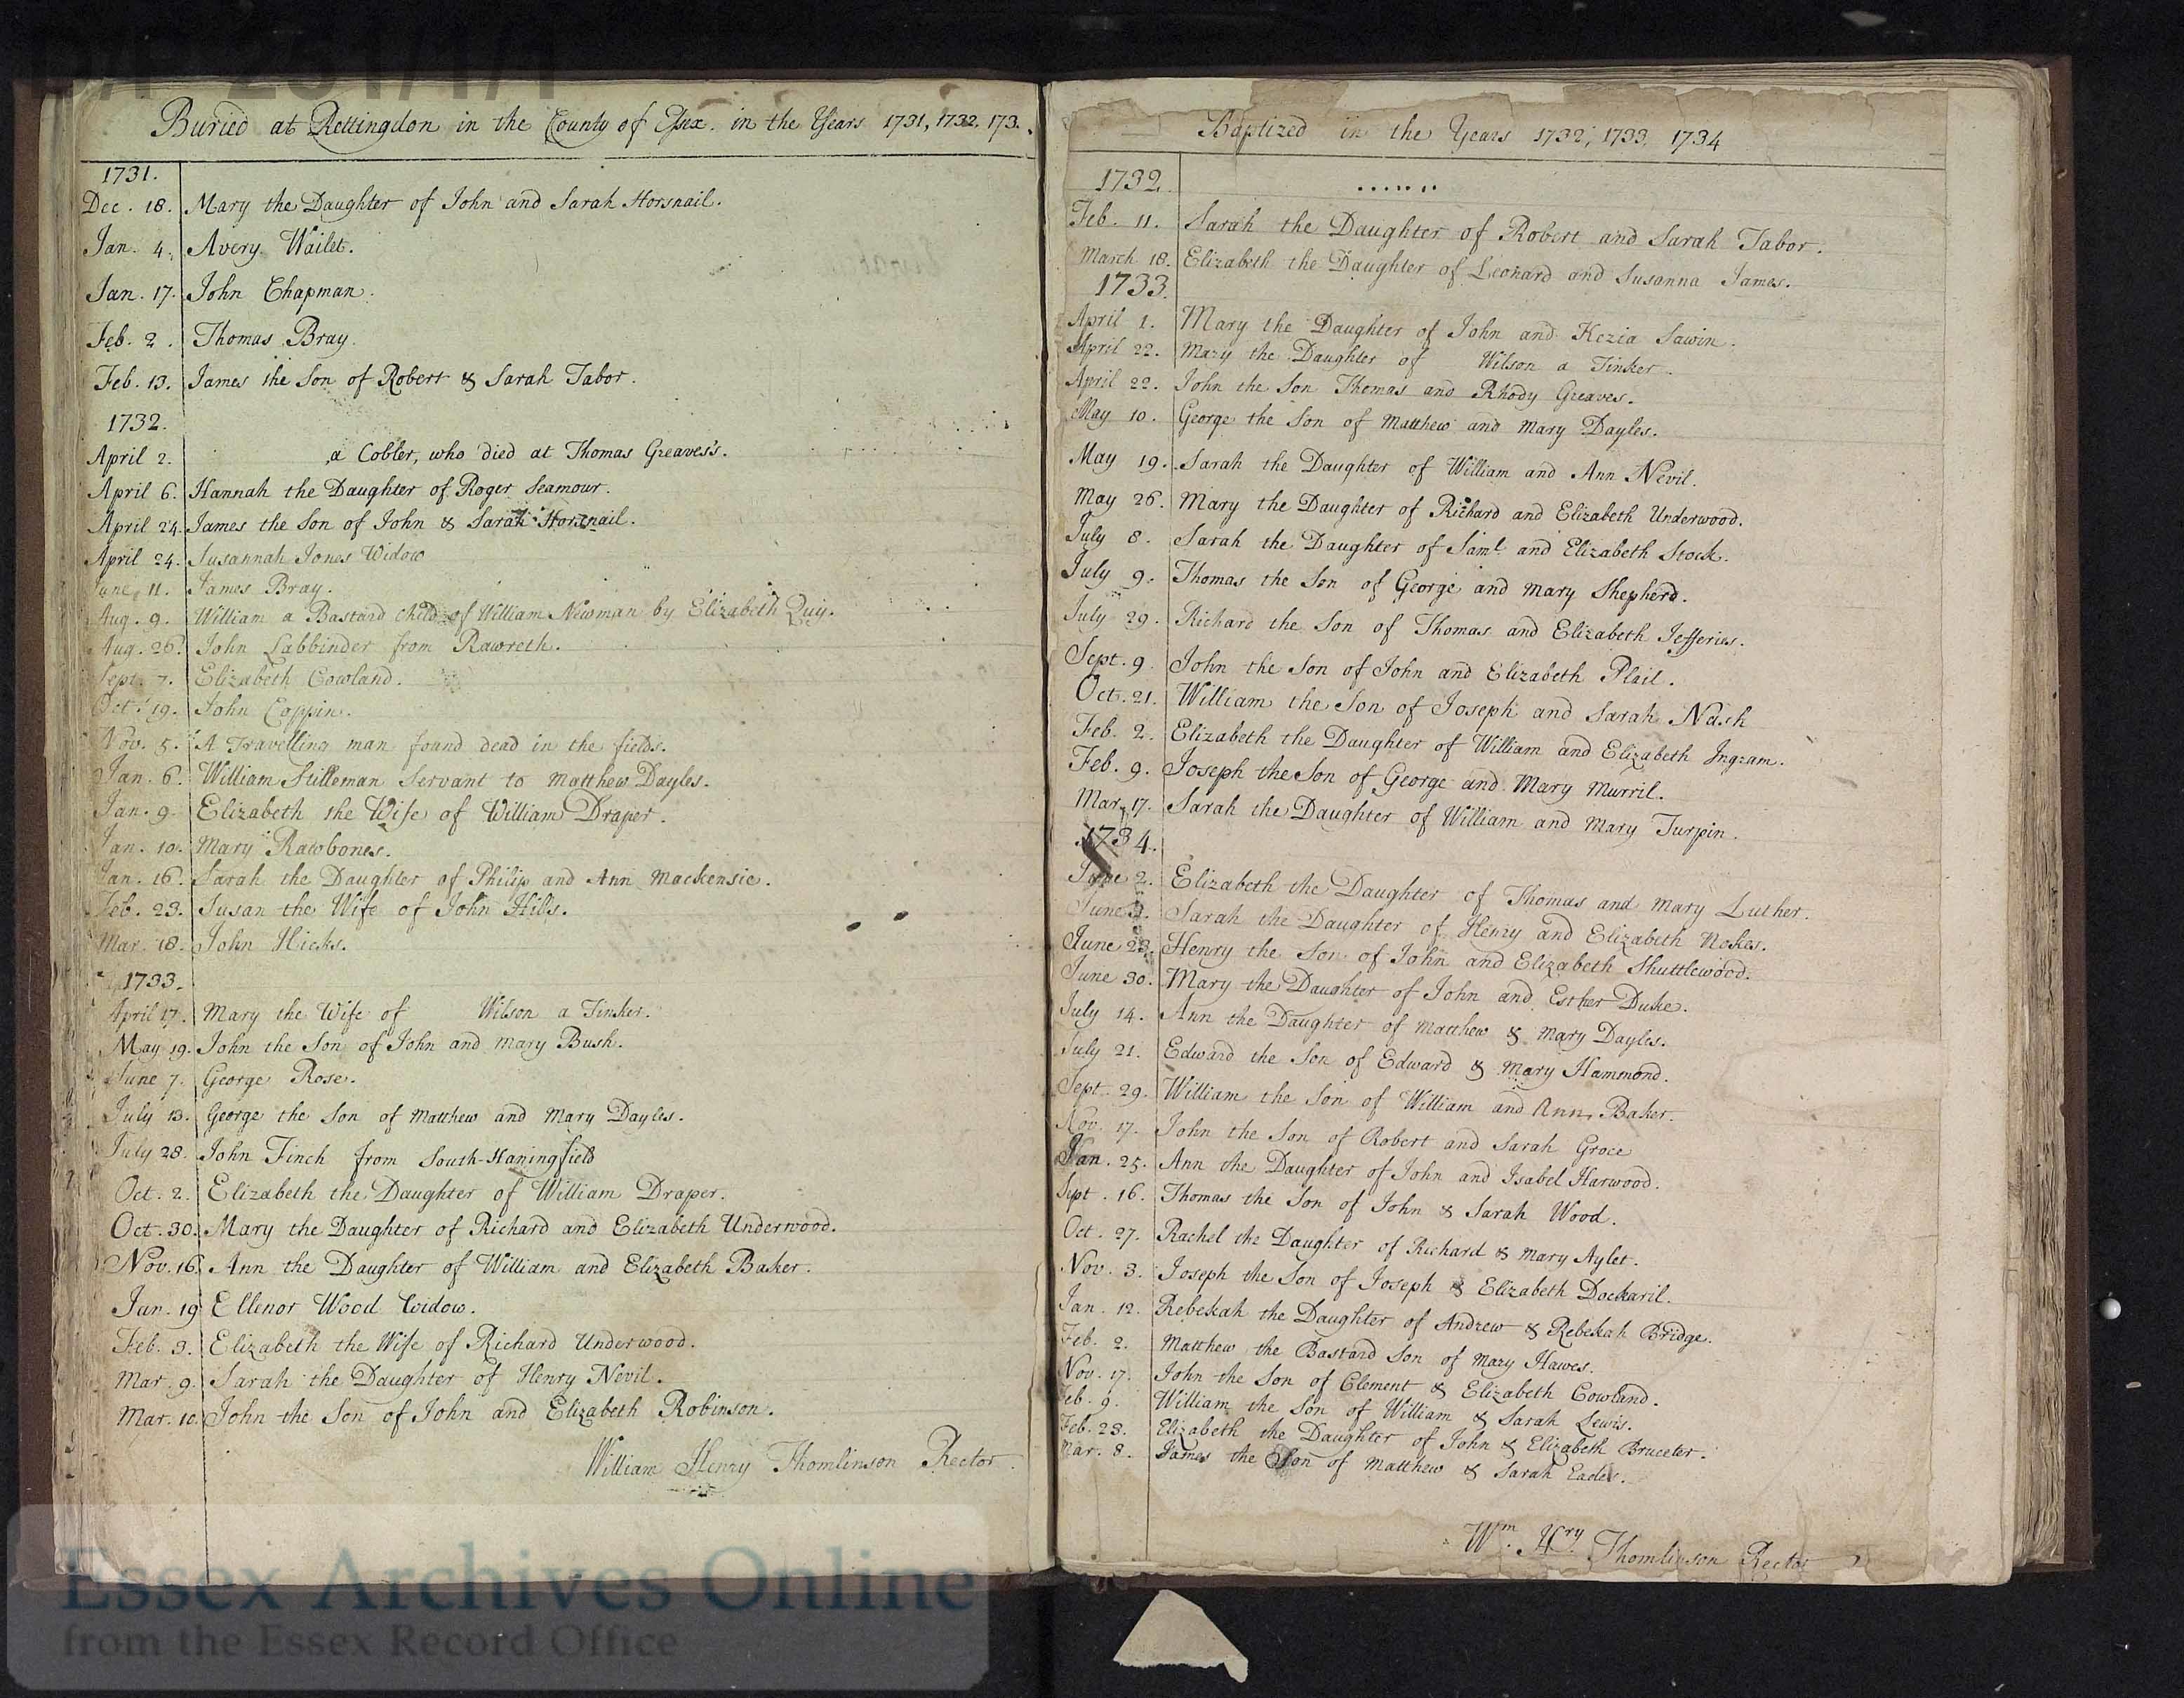 Buried at Rettingdon in the County of Essex. in the Years 1731, 1732, 173.
1731.
Dec. 18. Mary the Daughter of John and Sarah Horsnail.
Jan. 4. Avery Wailet.
Jan. 17. John Chapman.
Feb. 2. Thomas Bray.
Feb. 13. James the Son of Robert & Sarah Tabor.
1732.
April 2. a Cobler, who died at Thomas Greaves's.
April 6. Hannah the Daughter of Roger Seamour.
April 24. James the Son of John & Sarah Horsnail.
April 24. Susannah Jones Widow
June 11. James Bray.
Aug. 9. William a Bastard child of William Newman by Elizabeth Quy.
Aug. 26. John Labbinder from Rawreth.
Sept. 7. Elizabeth Cowland.
Oct. 19. John Coppin.
Nov. 5. A Travelling man found dead in the fields.
Jan. 6. William Stilleman Servant to Matthew Dayles.
Jan. 9. Elizabeth the Wife of William Draper.
Jan. 10. Mary Rawbones.
Jan. 16. Sarah the Daughter of Philip and Ann Mackensie.
Feb. 23. Susan the Wife of John Hills.
Mar. 18. John Hicks.
1733.
April 17. Mary the Wife of Wilson a Tinker.
May 19. John the Son of John and Mary Bush.
June 7. George Rose.
July 13. George the Son of Matthew and Mary Dayles.
July 28. John Finch from South-Haningfield
Oct. 2. Elizabeth the Daughter of William Draper.
Oct. 30. Mary the Daughter of Richard and Elizabeth Underwood.
Nov. 16. Ann the Daughter of William and Elizabeth Baker.
Jan. 19 Ellenor Wood Widow.
Feb. 3. Elizabeth the Wife of Richard Underwood.
Mar. 9. Sarah the Daughter of Henry Nevil.
Mar. 10. John the Son of John and Elizabeth Robinson.
William Henry Thomlinson Rector.
Baptized in the Years 1732, 1733, 1734
1732.
Feb. 11. Sarah the Daughter of Robert and Sarah Tabor.
March 18. Elizabeth the Daughter of Leonard and Susanna James.
1733.
April 1. Mary the Daughter of John and Kezia Sawin.
April 22. Mary the Daughter of Wilson a Tinker.
April 22. John the Son Thomas and Rhody Greaves.
May 10. George the Son of Matthew and Mary Dayles.
May 19. Sarah the Daughter of William and Ann Nevil.
May 26. Mary the Daughter of Richard and Elizabeth Underwood.
July 8. Sarah the Daughter of Saml. and Elizabeth Stock.
July 9. Thomas the Son of George and Mary Shepherd.
July 29. Richard the Son of Thomas and Elizabeth Jefferies.
Sept. 9. John the Son of John and Elizabeth Plail.
Oct. 21. William the Son of Joseph and Sarah Nash
Feb. 2. Elizabeth the Daughter of William and Elizabeth Ingram.
Feb. 9. Joseph the Son of George and Mary Murril.
Mar. 17. Sarah the Daughter of William and Mary Turpin.
1734.
June 2. Elizabeth the Daughter of Thomas and Mary Luther.
June Sarah the Daughter of Henry and Elizabeth Nokes.
June 23. Henry the Son of John and Elizabeth Shuttlewood.
June 30. Mary the Daughter of John and Esther Duke.
July 14. Ann the Daughter of Matthew & Mary Dayles.
July 21. Edward the Son of Edward & Mary Hammond.
Sept. 29. William the Son of William and Ann Baker.
Nov. 17. John the Son of Robert and Sarah Groce
Jan. 25. Ann the Daughter of John and Isabel Harwood.
Sept. 16. Thomas the Son of John & Sarah Wood.
Oct. 27. Rachel the Daughter of Richard & Mary Aylet.
Nov. 3. Joseph the Son of Joseph & Elizabeth Dockaril.
Jan. 12. Rebekah the Daughter of Andrew & Rebekah Bridge.
Feb. 2. Matthew the Bastard Son of Mary Hawes.
Nov. 17. John the Son of Clement & Elizabeth Cowland.
Feb. 9. William the Son of William & Sarah Lewis.
Feb. 23. Elizabeth the Daughter of John & Elizabeth Bruceter.
Mar. 8. James the Son of Matthew & Sarah Eades.
Wm. Hry Thomlinson Rector
Essex Archives Online
from the Essex Record Office